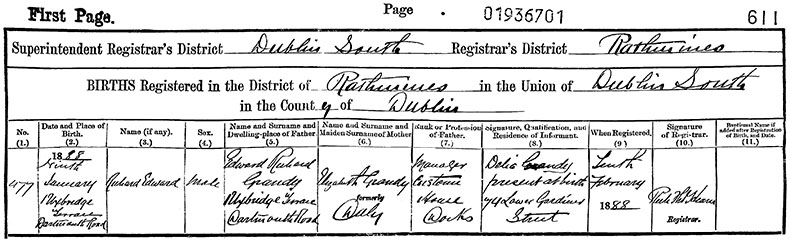 First Page.
Page . 01936701
611
Superintendent Registrar's District Dublin South Registrar's District Rathmines
BIRTHS Registered in the District of Rathmines in the Union of Dublin South
in the County of Dublin
No. (1.)
Date and Place of Birth. (2.)
Name (if any). (3.)
Sex. (4.)
Name and Surname and Dwelling-place of Father. (5.)
Name and Surname and Maiden Surname of Mother (6.)
Rank or Profession of Father. (7.)
Signature, Qualification, and Residence of Informant. (8.)
When Registered. (9.)
Signature of Registrar. (10.)
Baptismal Name if added after Registration of Birth, and Date. (11.)
477
1888
Ninth
January
1 Uxbridge
Terrace
Dartmouth Road
Richard Edward
Male
Edward Richard
Grandy
1 Uxbridge Terrace
Dartmouth Road
Elizabeth Grandy
formerly
Daly
Manager
Custom
House
Docks
Delia Grandy
present at birth
74 Lower Gardiner
Street
Tenth
February
1888
Registrar.